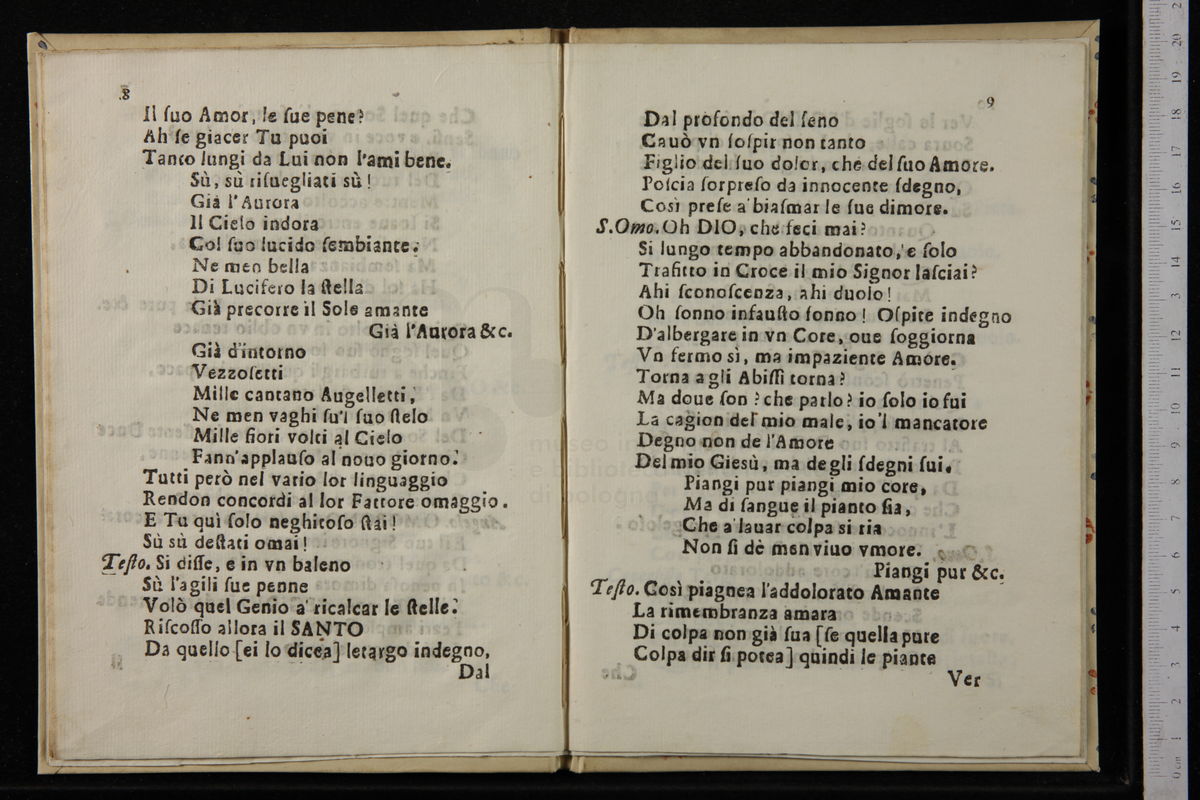 8
Il ſuo Amor, le ſue pene?
Ah ſe giacer Tu puoi
Tanto lungi da Lui non l'ami bene.
Sù, sù riſuegliati sù!
Già l'Aurora
Il Cielo indora
Col ſuo lucido ſembiante.
Ne men bella
Di Lucifero la ſtella
Già precorre il Sole amante
Già l'Aurora &c.
Già d'intorno
Vezzoſetti
Mille cantano Augelletti,
Ne men vaghi ſu'l ſuo ſtelo
Mille fiori volti al Cielo
Fann'applauſo al nouo giorno.
Tutti però nel vario lor linguaggio
Rendon concordi al lor Fattore omaggio.
E Tu quì ſolo neghitoſo ſtai!
Sù sù deſtati omai!
Teſto. Si diſſe, e in vn baleno
Sù l'agili ſue penne
Volò quel Genio a' ricalcar le ſtelle.
Riſcoſſo allora il SANTO
Da quello [ei lo dicea] letargo indegno,
Dal
9
Dal profondo del ſeno
Cauò vn ſoſpir non tanto
Figlio del ſuo dolor, che del ſuo Amore.
Poſcia ſorpreſo da innocente ſdegno,
Così preſe a' biaſmar le ſue dimore.
S. Omo. Oh DIO, che feci mai?
Si lungo tempo abbandonato, e ſolo
Trafitto in Croce il mio Signor laſciai?
Ahi ſconoſcenza, ahi duolo!
Oh ſonno infauſto ſonno! Oſpite indegno
D'albergare in vn Core, oue ſoggiorna
Vn fermo sì, ma impaziente Amore.
Torna a gli Abiſſi torna?
Ma doue ſon? che parlo? io ſolo io fui
La cagion del mio male, io'l mancatore
Degno non de l'Amore
Del mio Giesù, ma de gli ſdegni ſui.
Piangi pur piangi mio core,
Ma di ſangue il pianto ſia,
Che a' lauar colpa si ria
Non ſi dè men viuo vmore.
Piangi pur &c.
Teſto. Così piagnea l'addolorato Amante
La rimembranza amara
Di colpa non già ſua [ſe quella pure
Colpa dir ſi potea] quindi le piante
Ver